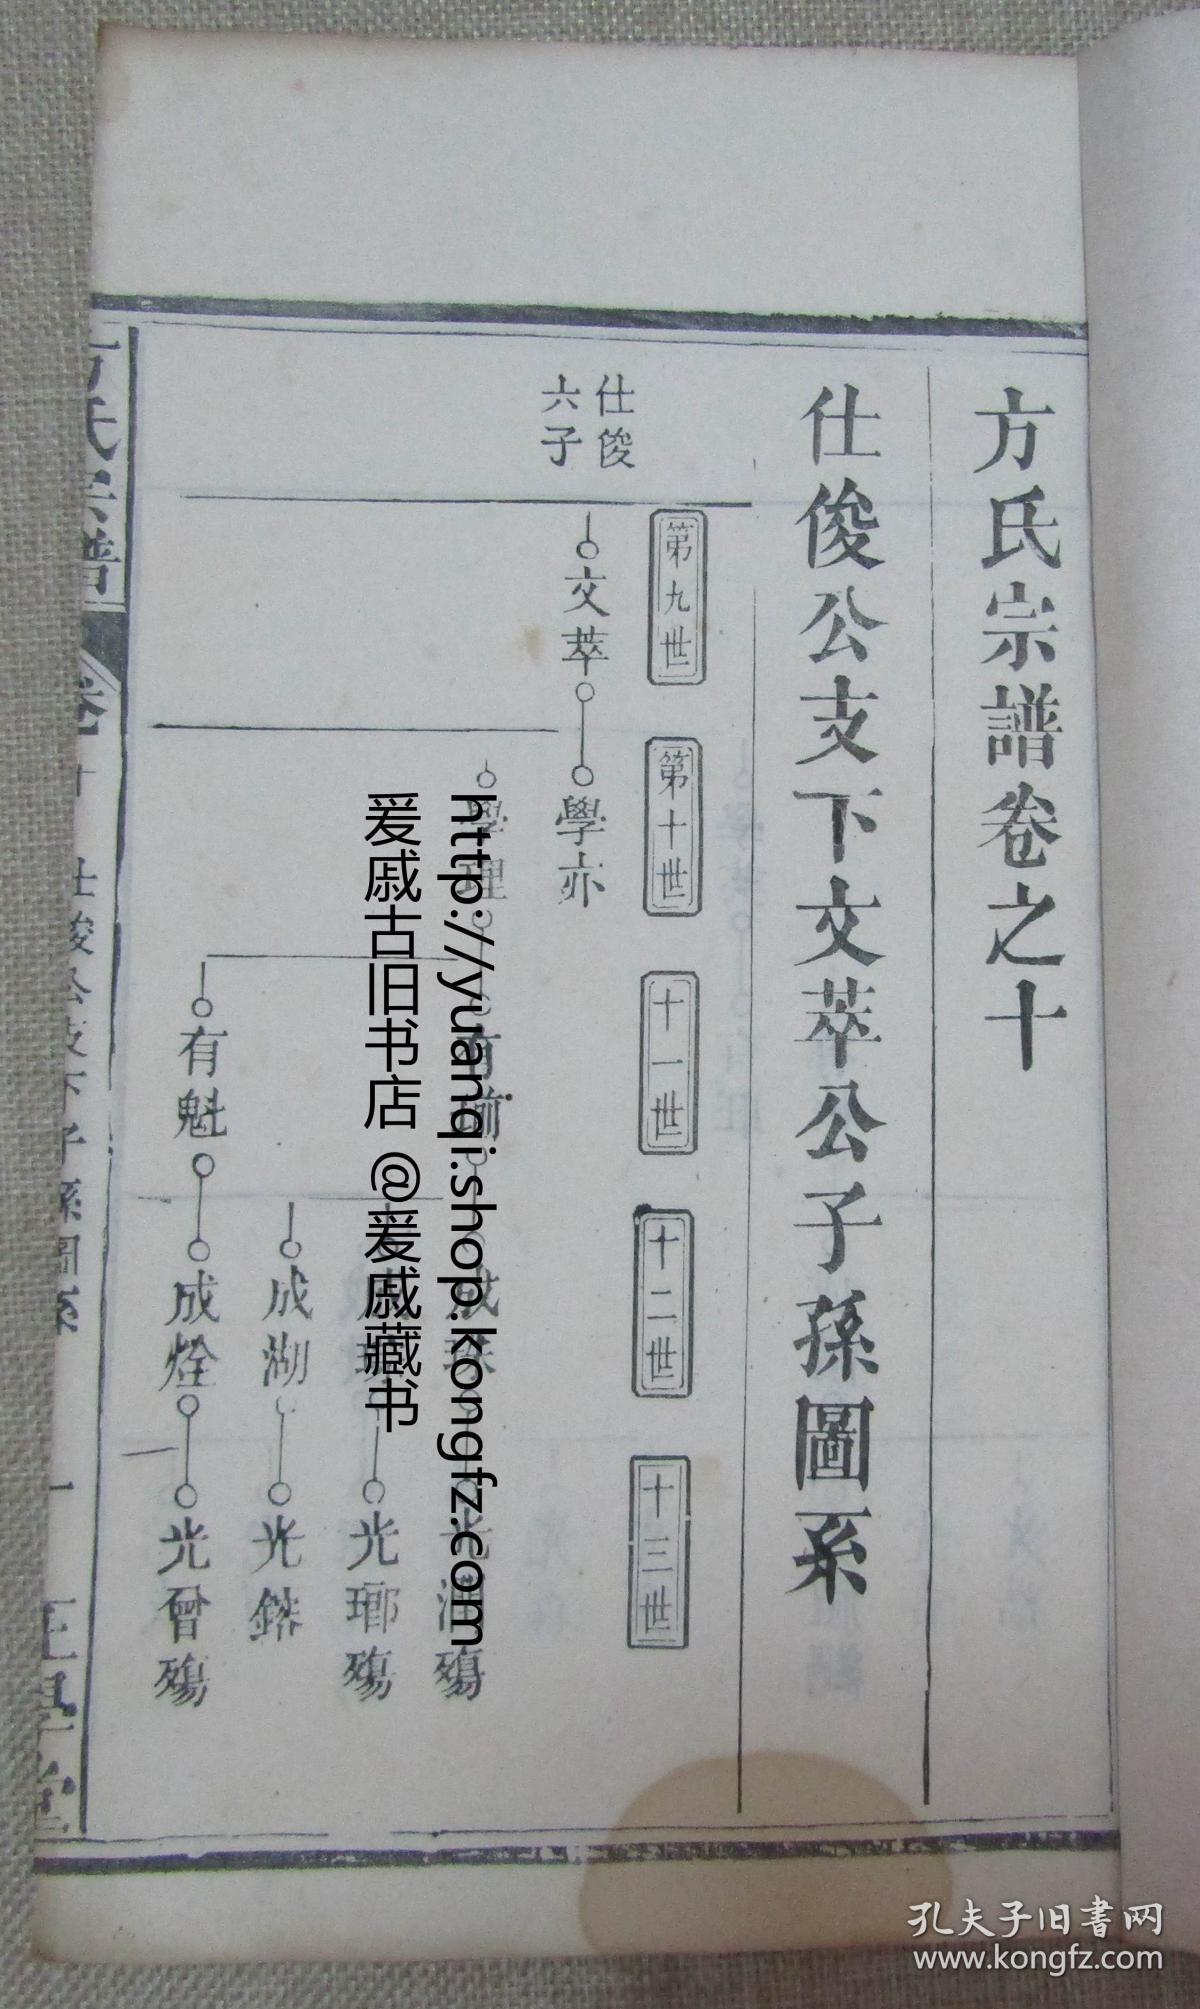 方氏宗譜卷之十
仕俊公支下文萃公子孫圖系
第九世
第十世
十一世
十二世
十三世
仕俊
六子
文萃
學亦
學理
有瑜
成珠
光潤殤
光瑯殤
成湖
光鎔
有魁
成烇
光曾殤
方氏宗譜
卷十
仕俊公支下子孫圖系
一
http://yuanqi.shop.kongfz.com
爰戚古旧书店@爰戚藏书
孔夫子旧书网
www.kongfz.com